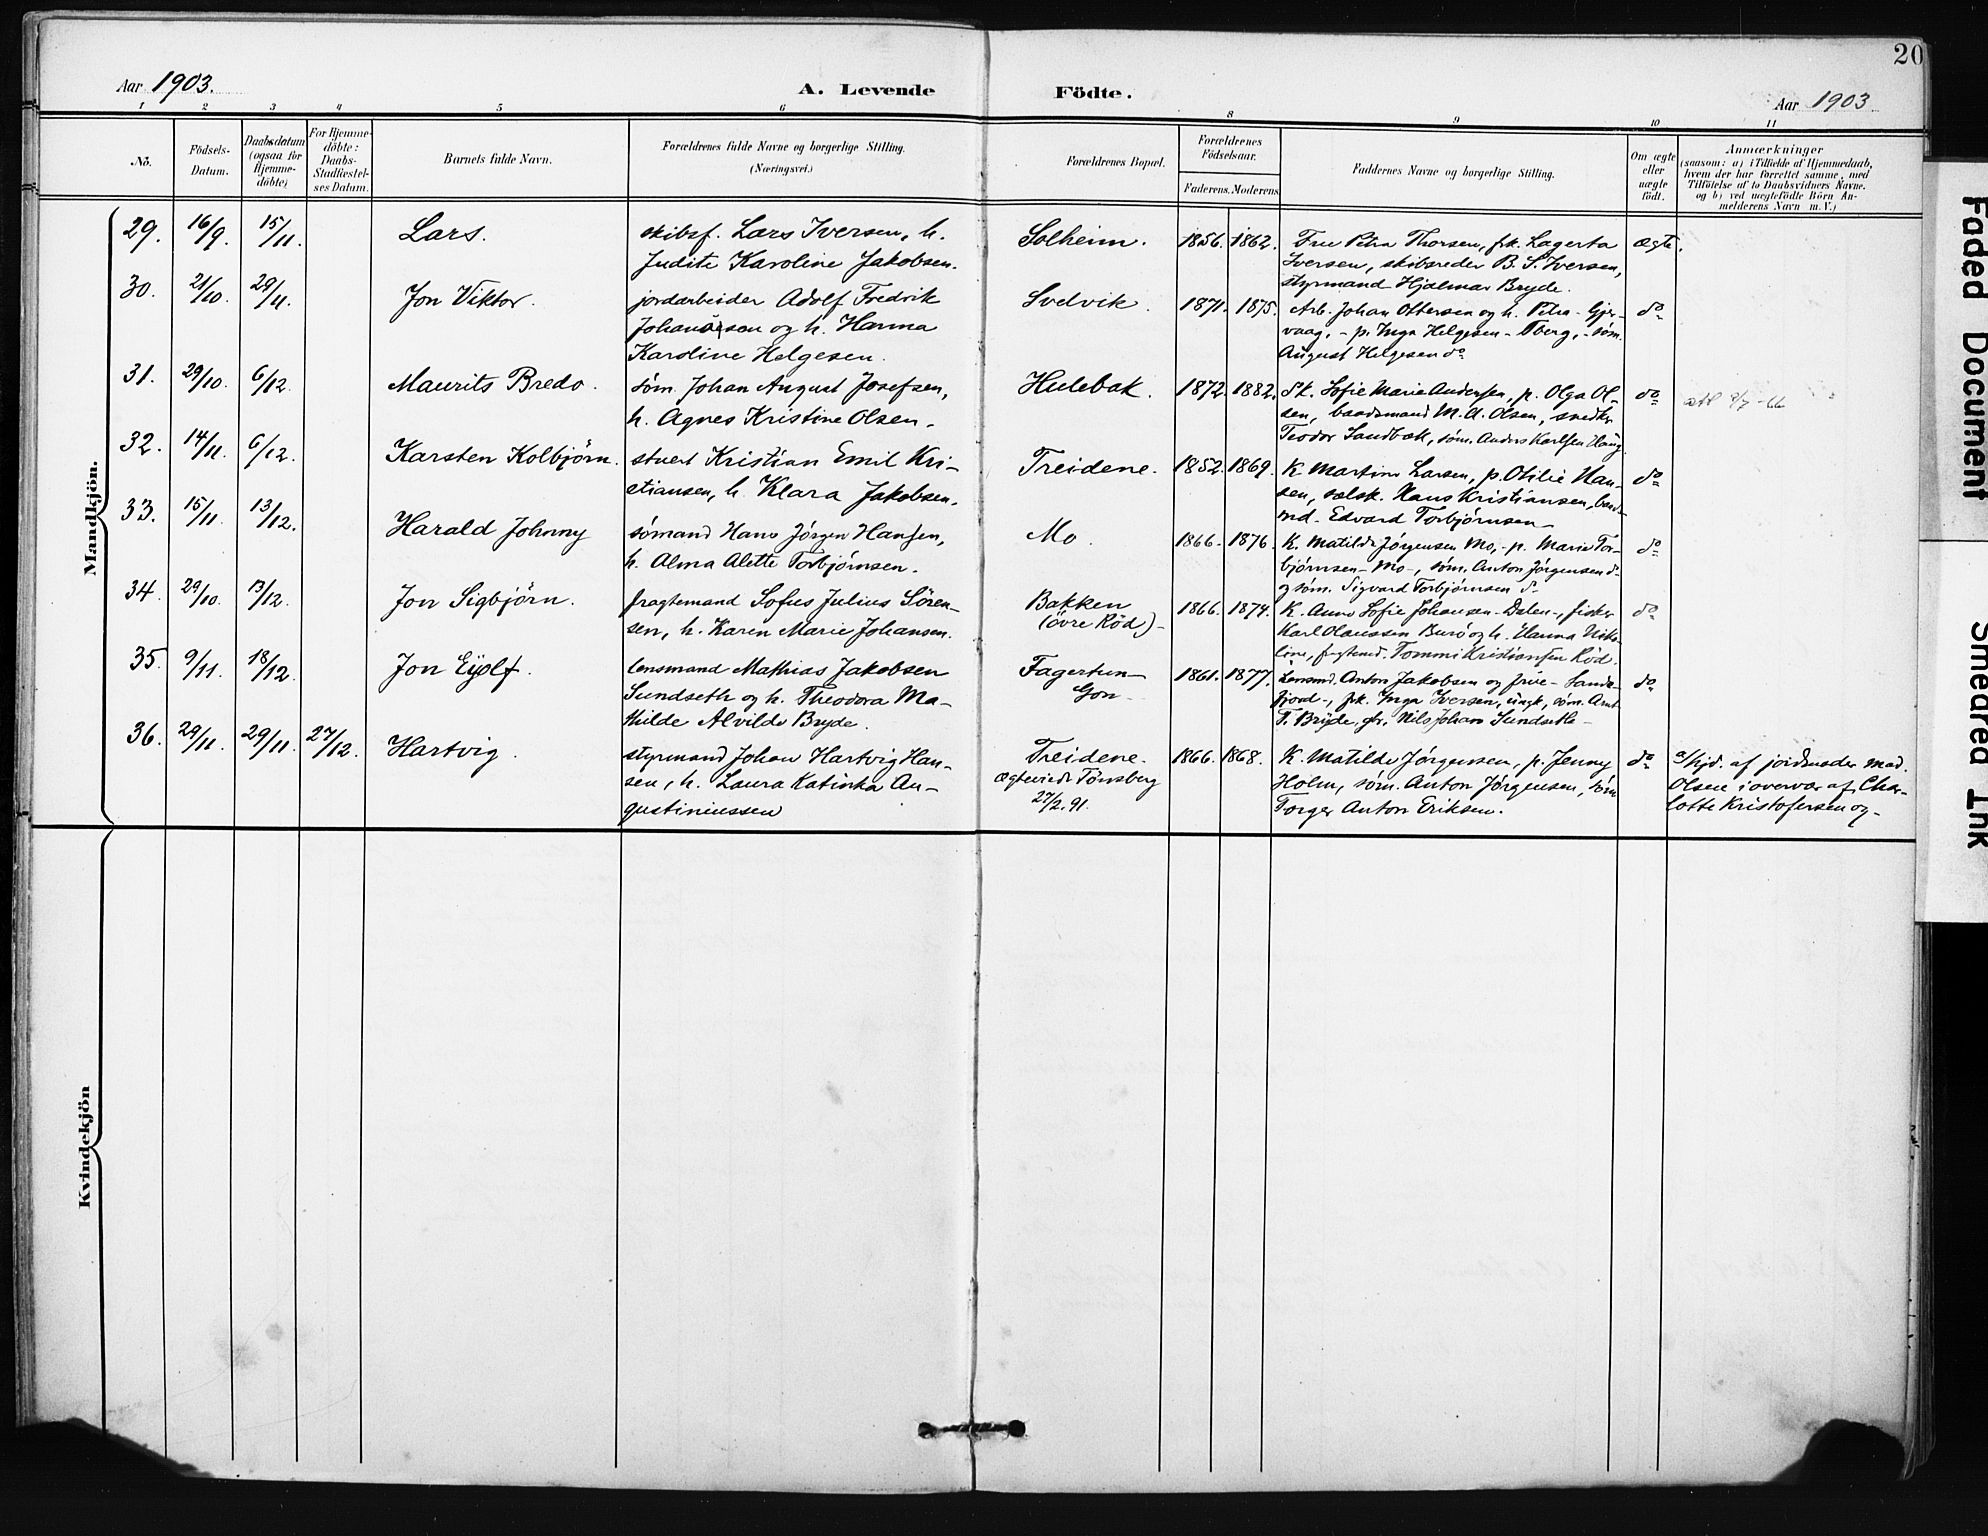 20
Aar 1903.
A. Levende Födte.
Aar 1903
1 2 3 4 5 6 8 9 10 11
No.
Födsels-
Datum.
Daabsdatum
(ogsaa for
Hjemme-
döbte)
For Hjemme-
döbte:
Daabs-
Stadfæstel-
ses Datum.
Barnets fulde Navn.
Forældrenes fulde Navne og borgerlige Stilling.
(Næringsvei.)
Forældrenes Bopæl.
Forældrenes
Födselsaar.
Faderens. Moderens
Faddernes Navne og borgerlige Stilling.
Om ægte
eller
uægte
födt.
Anmærkninger
(saasom: a) i Tilfælde af Hjemmedaab,
hvem der har forrettet samme, med
Tilföielse af to Daabsvidners Navne.
og b) ved uægtefödte Börn An-
melderens Navn m. V.)
Mandkjön.
29. 16/9. 15/11. Lars.
skibsf. Lars Iversen, h.
Judite Karoline Jakobsen.
Solheim. 1856. 1862.
Fru Petra Thorsen, frk. Lagerta
Iversen, skibsreder B. S. Iversen,
styrmand Hjalmar Bryde.
ægte.
30. 21/10. 29/11. Jon Viktor.
jordarbeider Adolf Fredrik
Johannesen og h. Hanna
Karoline Helgesen.
Svelvik. 1871. 1875.
Arb. Johan Ottersen og h. Petra - Gjer-
vaag, - p. Inga Helgesen - Oberg, - søm.
August Helgesen do
do
31. 29/10. 6/12. Maurits Bredo.
søm. Johan August Josefsen,
h. Agnes Kristine Olsen.
Hulebak. 1872. 1882.
Sk. Sofie Marie Andersen, p. Olga Ol-
sen, baadsmand M. A. Olsen, snedker
Teodor Sandbæk, søm. Anders Karlsen Haug
do
32. 14/11. 6/12. Karsten Kolbjörn.
stuert Kristian Emil Kri-
stiansen, h. Klara Jakobsen.
Treidene. 1852. 1869.
K. Martine Larsen, p. Otilie Han-
sen, sælsk. Hans Kristiansen, baads-
md. Edvard Torbjørnsen
do
33. 15/11. 13/12. Harald Johnny
sømand Hans Jørgen Hansen,
h. Alma Alette Torbjørnsen.
Mo. 1866. 1876.
K. Matilde Jørgensen Mo, - p. Marie Tor-
bjørnsen - Mo -, søm. Anton Jørgensen do
og søm. Sigvard Torbjørnsen do
do
34. 29/10. 13/12. Jon Sigbjörn.
fragtemand Sofus Julius Sören-
sen, h. Karen Marie Johansen.
Bakken
(övre Röd) - 1866. 1874.
K. Anne Sofie Johansen - Dalen -, fisker
Karl Olaussen Burö og h. Hanna Niko-
line, fragtemd. Tommi Kristiansen Röd.
do
35. 9/11. 18/12. Jon Eyolf.
lensmand Mathias Jakobsen
Sundseth og h. Theodora Ma-
thilde Alvilde Bryde.
Fagertun -
Gon - 1861. 1877.
Lensmd. Anton Jakobsen og frue - Sande-
fjord -, frk. Inga Iversen, ungk. søm. Arnt
T. Bryde, gbr. Nils Johan Sundseth -
do
36. 29/11. 29/11. 27/12. Hartvig.
styrmand Johan Hartvig Han-
sen, h. Laura Katinka Au-
gustiniussen
Treidene.
ægteviede Tönsberg
27/2.91. 1866. 1868.
K. Matilde Jørgensen, p. Jenny
Holm, søm. Anton Jørgensen, søm
Torger Anton Eriksen.
do
a/ hjd. af jordmoder mad.
Olsen i overvær af Char-
lotte Kristofersen og -
Kvindekjön
Faded Document
Smeared Ink